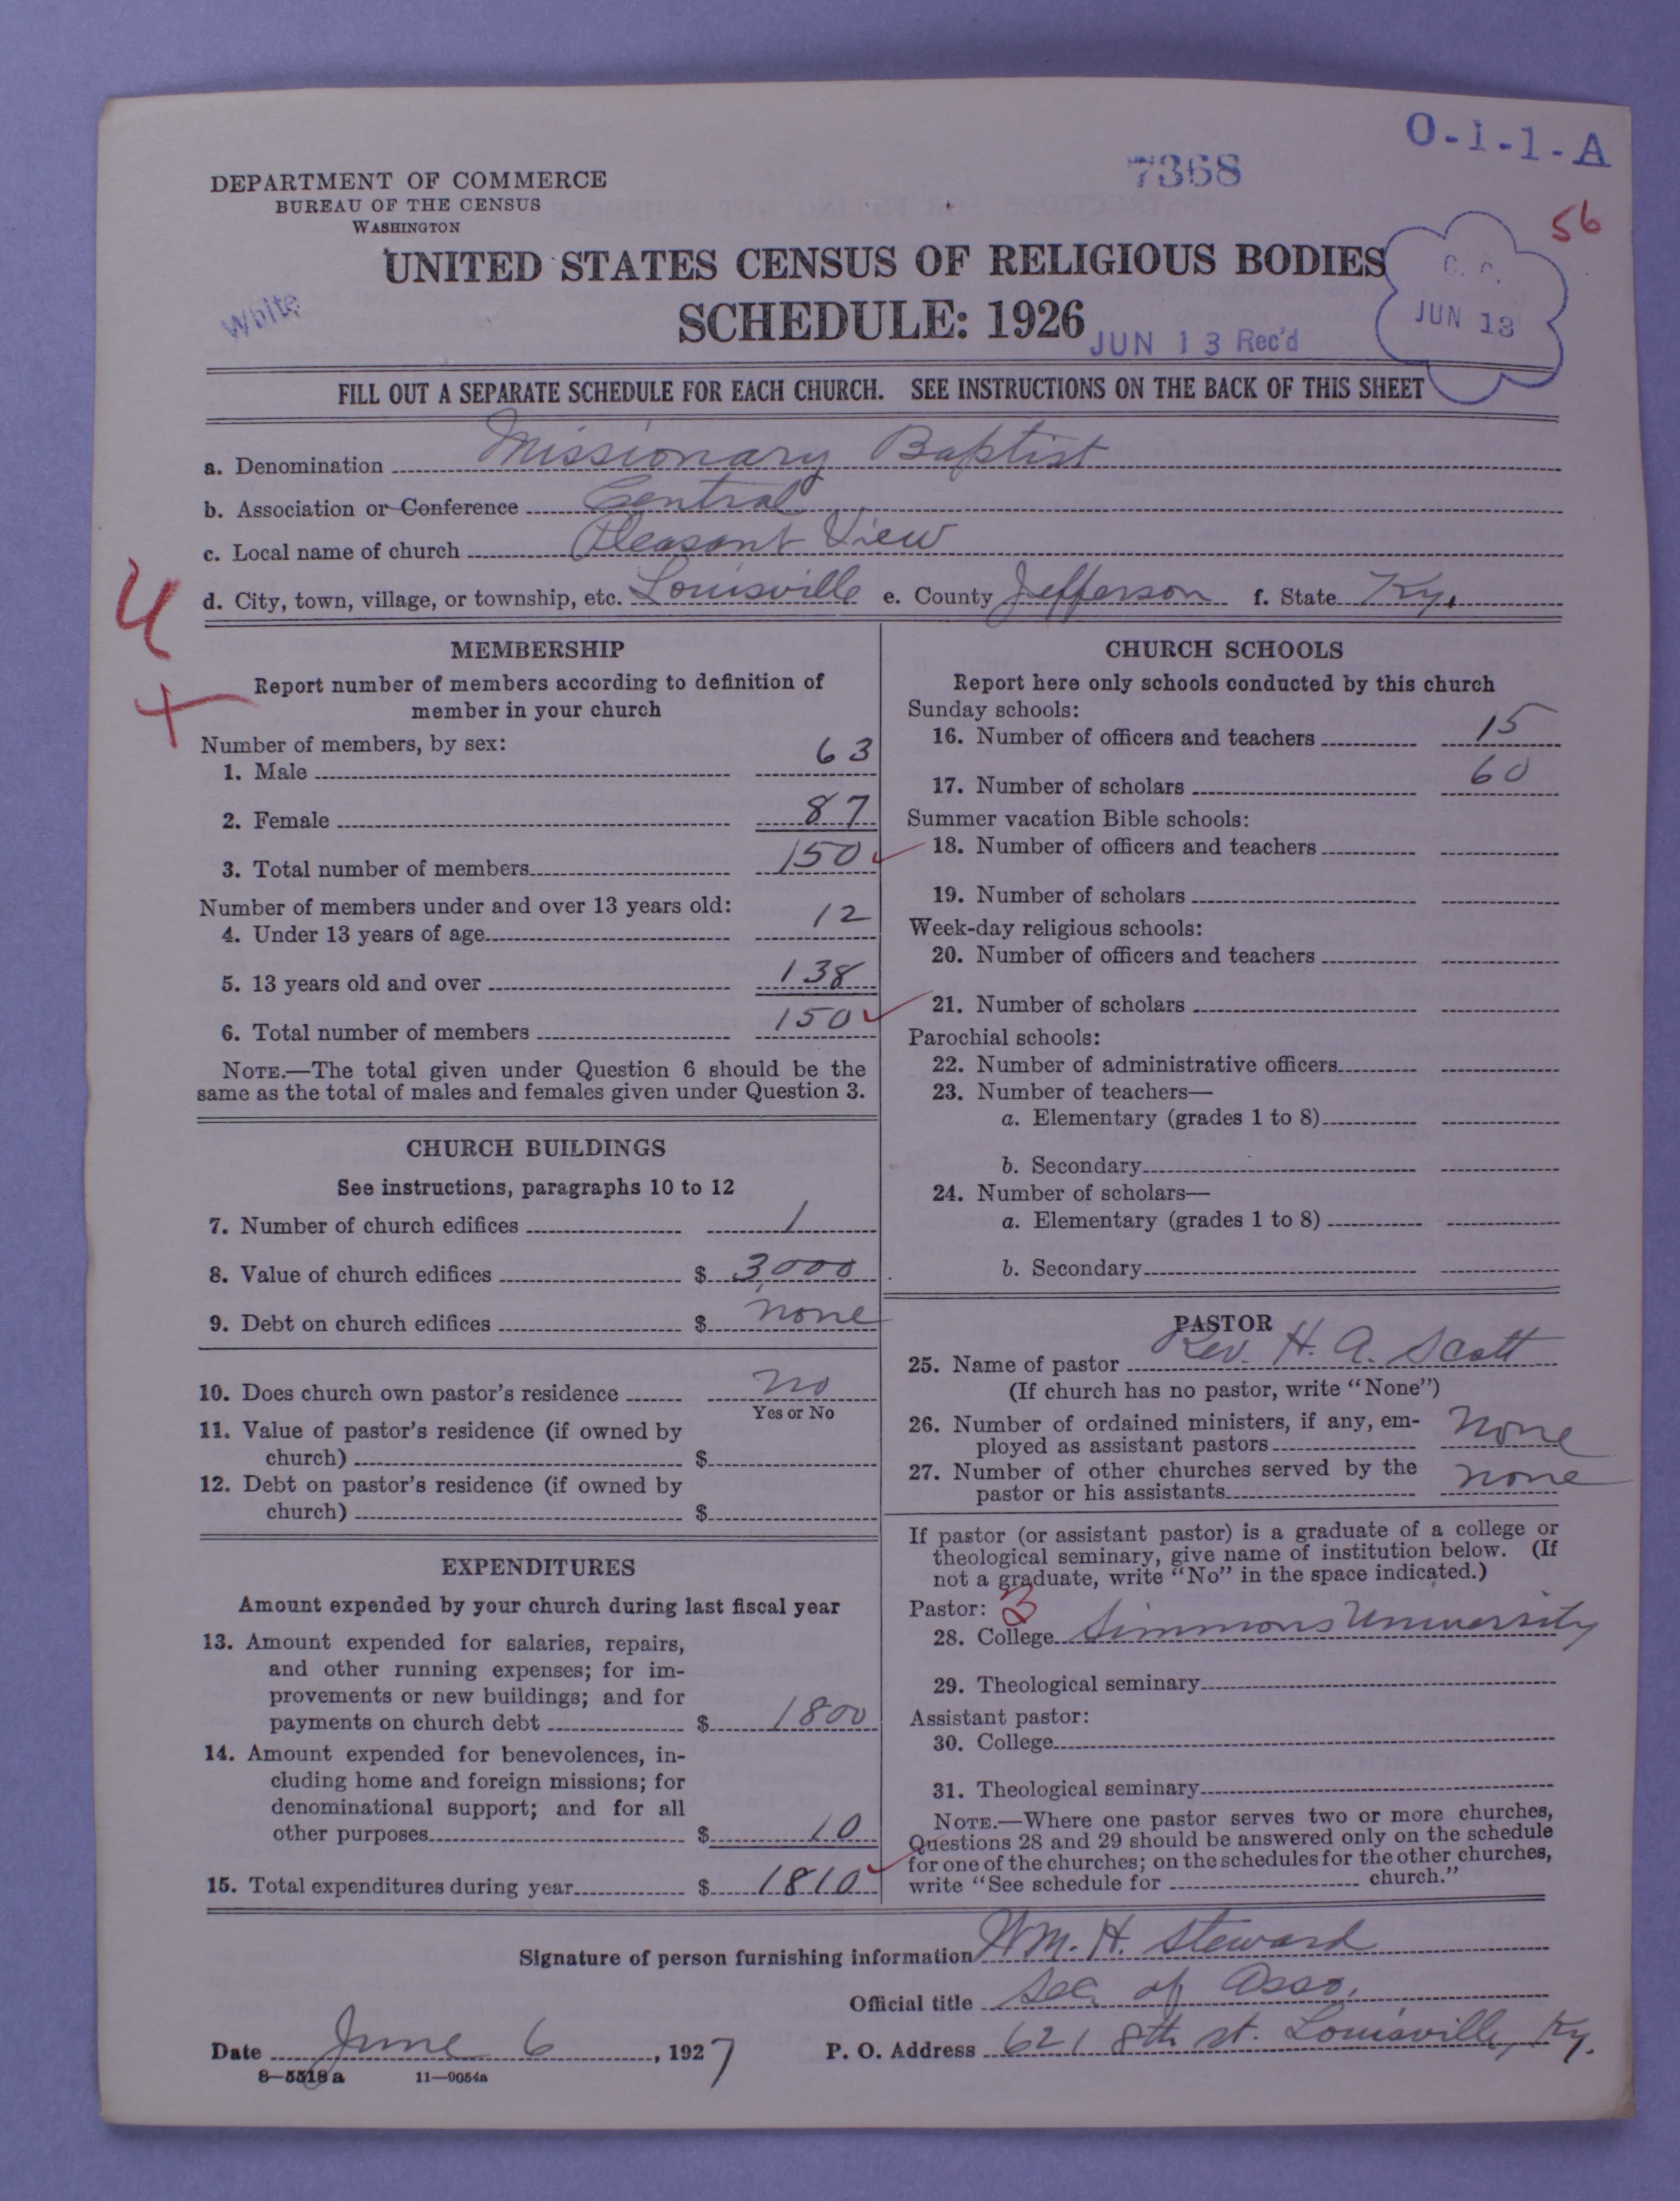 O-1-1-A
7368
56
DEPARTMENT OF COMMERCE
BUREAU OF THE CENSUS
WASHINGTON
UNITED STATES CENSUS OF RELIGIOUS BODIES
SCHEDULE: 1926
White
JUN 13 Rec'd
JUN 13
FILL OUT A SEPARATE SCHEDULE FOR EACH CHURCH. SEE INSTRUCTIONS ON THE BACK OF THIS SHEET
a. Denomination Missionary Baptist
b. Association or Conference Central
c. Local name of church Pleasant View
d. City, town, village, or township, etc. Louisville e. County Jefferson f. State Ky.
MEMBERSHIP
Report number of members according to definition of
member in your church
Number of members, by sex:
1. Male 63
2. Female 87
3. Total number of members 150
Number of members under and over 13 years old:
4. Under 13 years of age 12
5. 13 years old and over 138
6. Total number of members 150
NOTE.—The total given under Question 6 should be the
same as the total of males and females given under Question 3.
CHURCH BUILDINGS
See instructions, paragraphs 10 to 12
7. Number of church edifices 1
8. Value of church edifices $ 3,000
9. Debt on church edifices $ none
10. Does church own pastor's residence no
Yes or No
11. Value of pastor's residence (if owned by
church) $
12. Debt on pastor's residence (if owned by
church) $
EXPENDITURES
Amount expended by your church during last fiscal year
13. Amount expended for salaries, repairs,
and other running expenses; for im-
provements or new buildings; and for
payments on church debt $ 1800
14. Amount expended for benevolences, in-
cluding home and foreign missions; for
denominational support; and for all
other purposes $ 10
15. Total expenditures during year $ 1810
CHURCH SCHOOLS
Report here only schools conducted by this church
Sunday schools:
16. Number of officers and teachers 15
17. Number of scholars 60
Summer vacation Bible schools:
18. Number of officers and teachers
19. Number of scholars
Week-day religious schools:
20. Number of officers and teachers
21. Number of scholars
Parochial schools:
22. Number of administrative officers
23. Number of teachers—
a. Elementary (grades 1 to 8)
b. Secondary
24. Number of scholars—
a. Elementary (grades 1 to 8)
b. Secondary
PASTOR
25. Name of pastor Rev. H. A. Scott
(If church has no pastor, write "None")
26. Number of ordained ministers, if any, em-
ployed as assistant pastors none
27. Number of other churches served by the
pastor or his assistants none
If pastor (or assistant pastor) is a graduate of a college or
theological seminary, give name of institution below. (If
not a graduate, write "No" in the space indicated.)
Pastor: 3
28. College Simmons University
29. Theological seminary
Assistant pastor:
30. College
31. Theological seminary
NOTE.—Where one pastor serves two or more churches,
Questions 28 and 29 should be answered only on the schedule
for one of the churches; on the schedules for the other churches,
write "See schedule for church."
Signature of person furnishing information Wm. H. Steward
Official title Sec. of Asso.
Date June 6, 1927 P. O. Address 621 8th st. Louisville, Ky.
8—5518 a 11—9054a